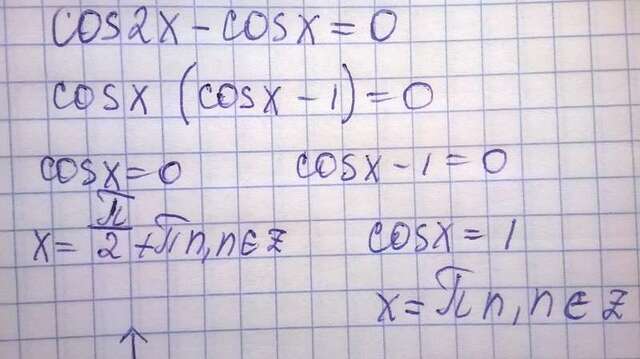 cos2x - cosx = 0
cosx (cosx - 1) = 0
cosx = 0 cosx - 1 = 0
x = π/2 + πn, n ∈ Z cosx = 1
x = πn, n ∈ Z
↑